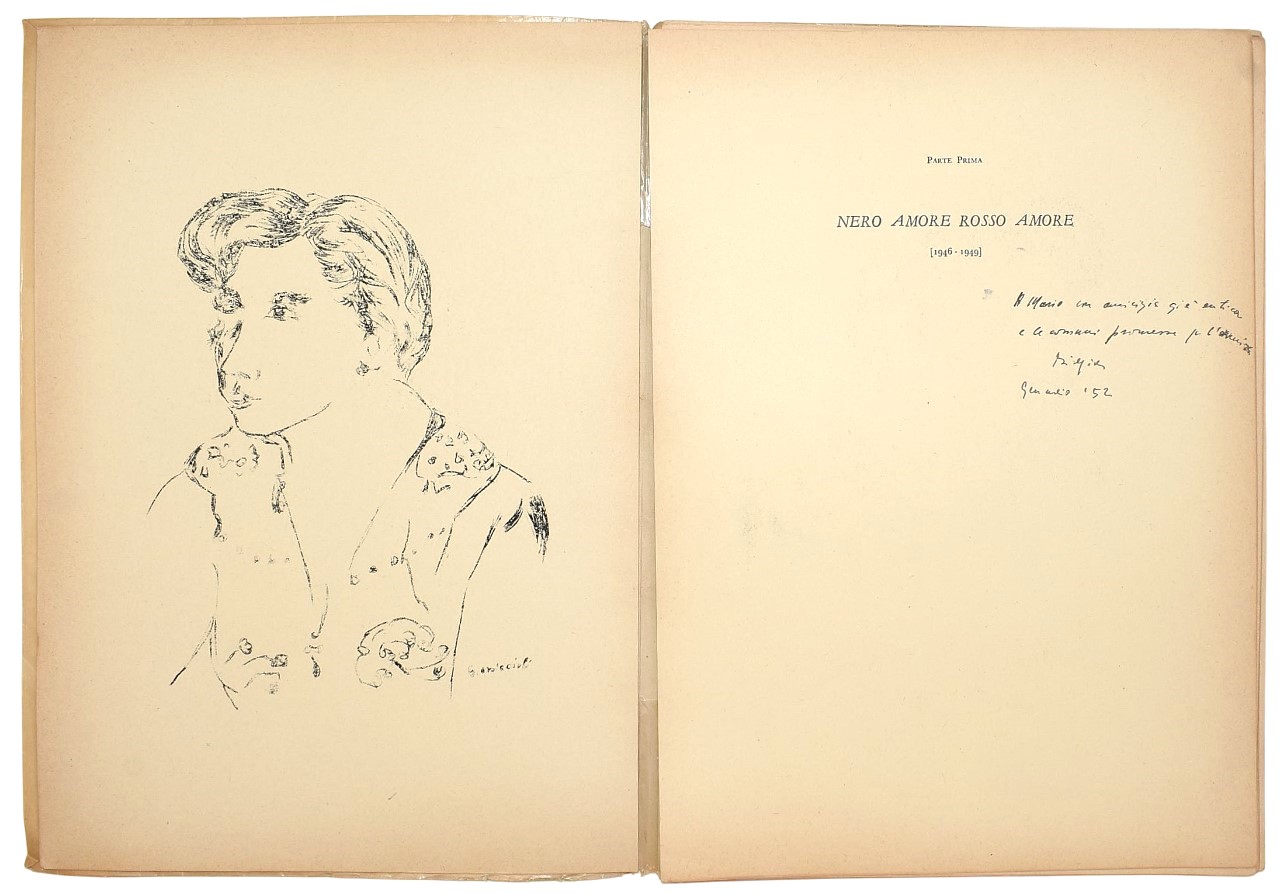 Parte Prima
NERO AMORE ROSSO AMORE
[1946 - 1949]
A Mario con amicizia già antica
e le comuni promesse
Gennaio '52